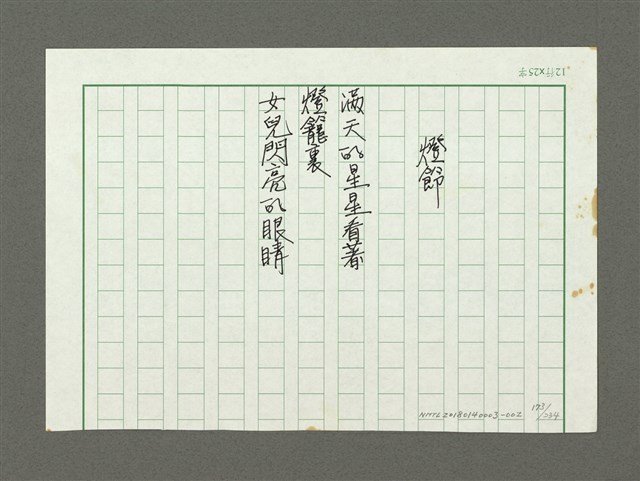 12行×25字
燈節
滿天的星星看著
燈籠裏
女兒閃亮的眼睛
NMTL20180140003-002
173/234